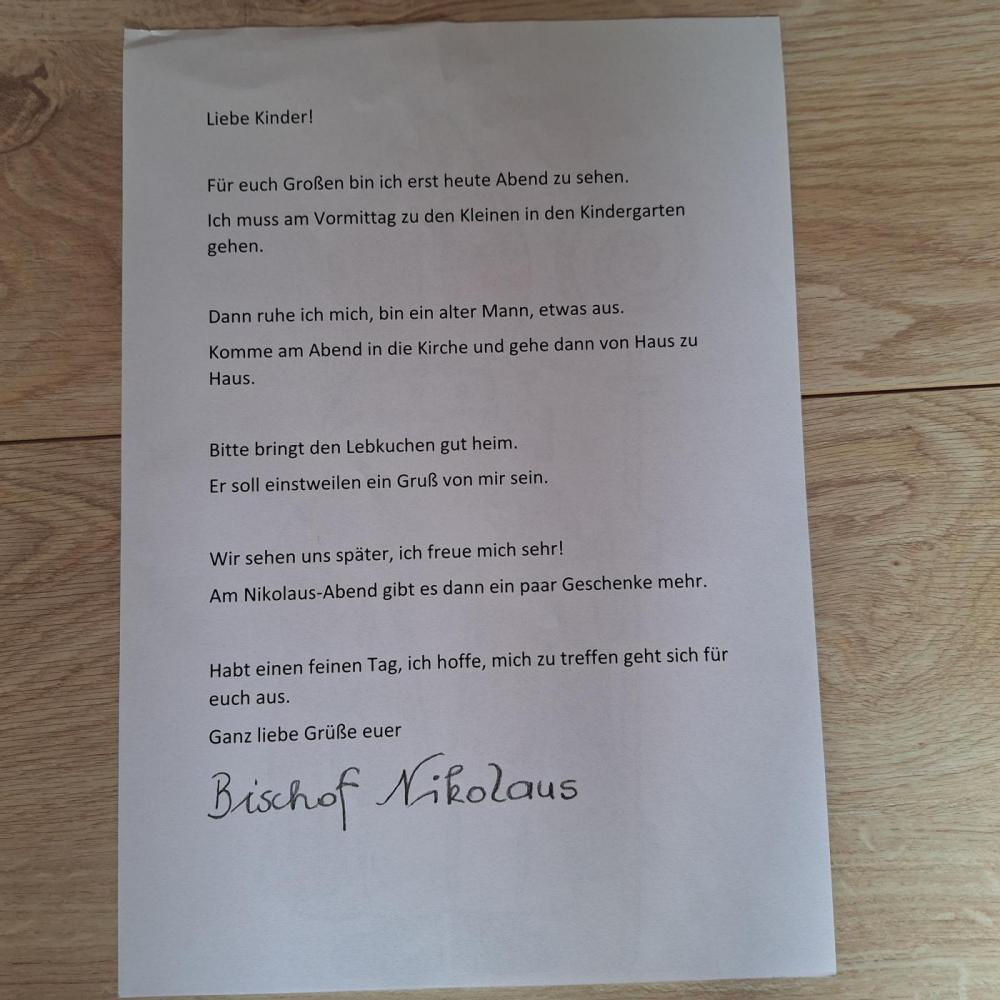 Liebe Kinder!
Für euch Großen bin ich erst heute Abend zu sehen.
Ich muss am Vormittag zu den Kleinen in den Kindergarten
gehen.
Dann ruhe ich mich, bin ein alter Mann, etwas aus.
Komme am Abend in die Kirche und gehe dann von Haus zu
Haus.
Bitte bringt den Lebkuchen gut heim.
Er soll einstweilen ein Gruß von mir sein.
Wir sehen uns später, ich freue mich sehr!
Am Nikolaus-Abend gibt es dann ein paar Geschenke mehr.
Habt einen feinen Tag, ich hoffe, mich zu treffen geht sich für
euch aus.
Ganz liebe Grüße euer
Bischof Nikolaus